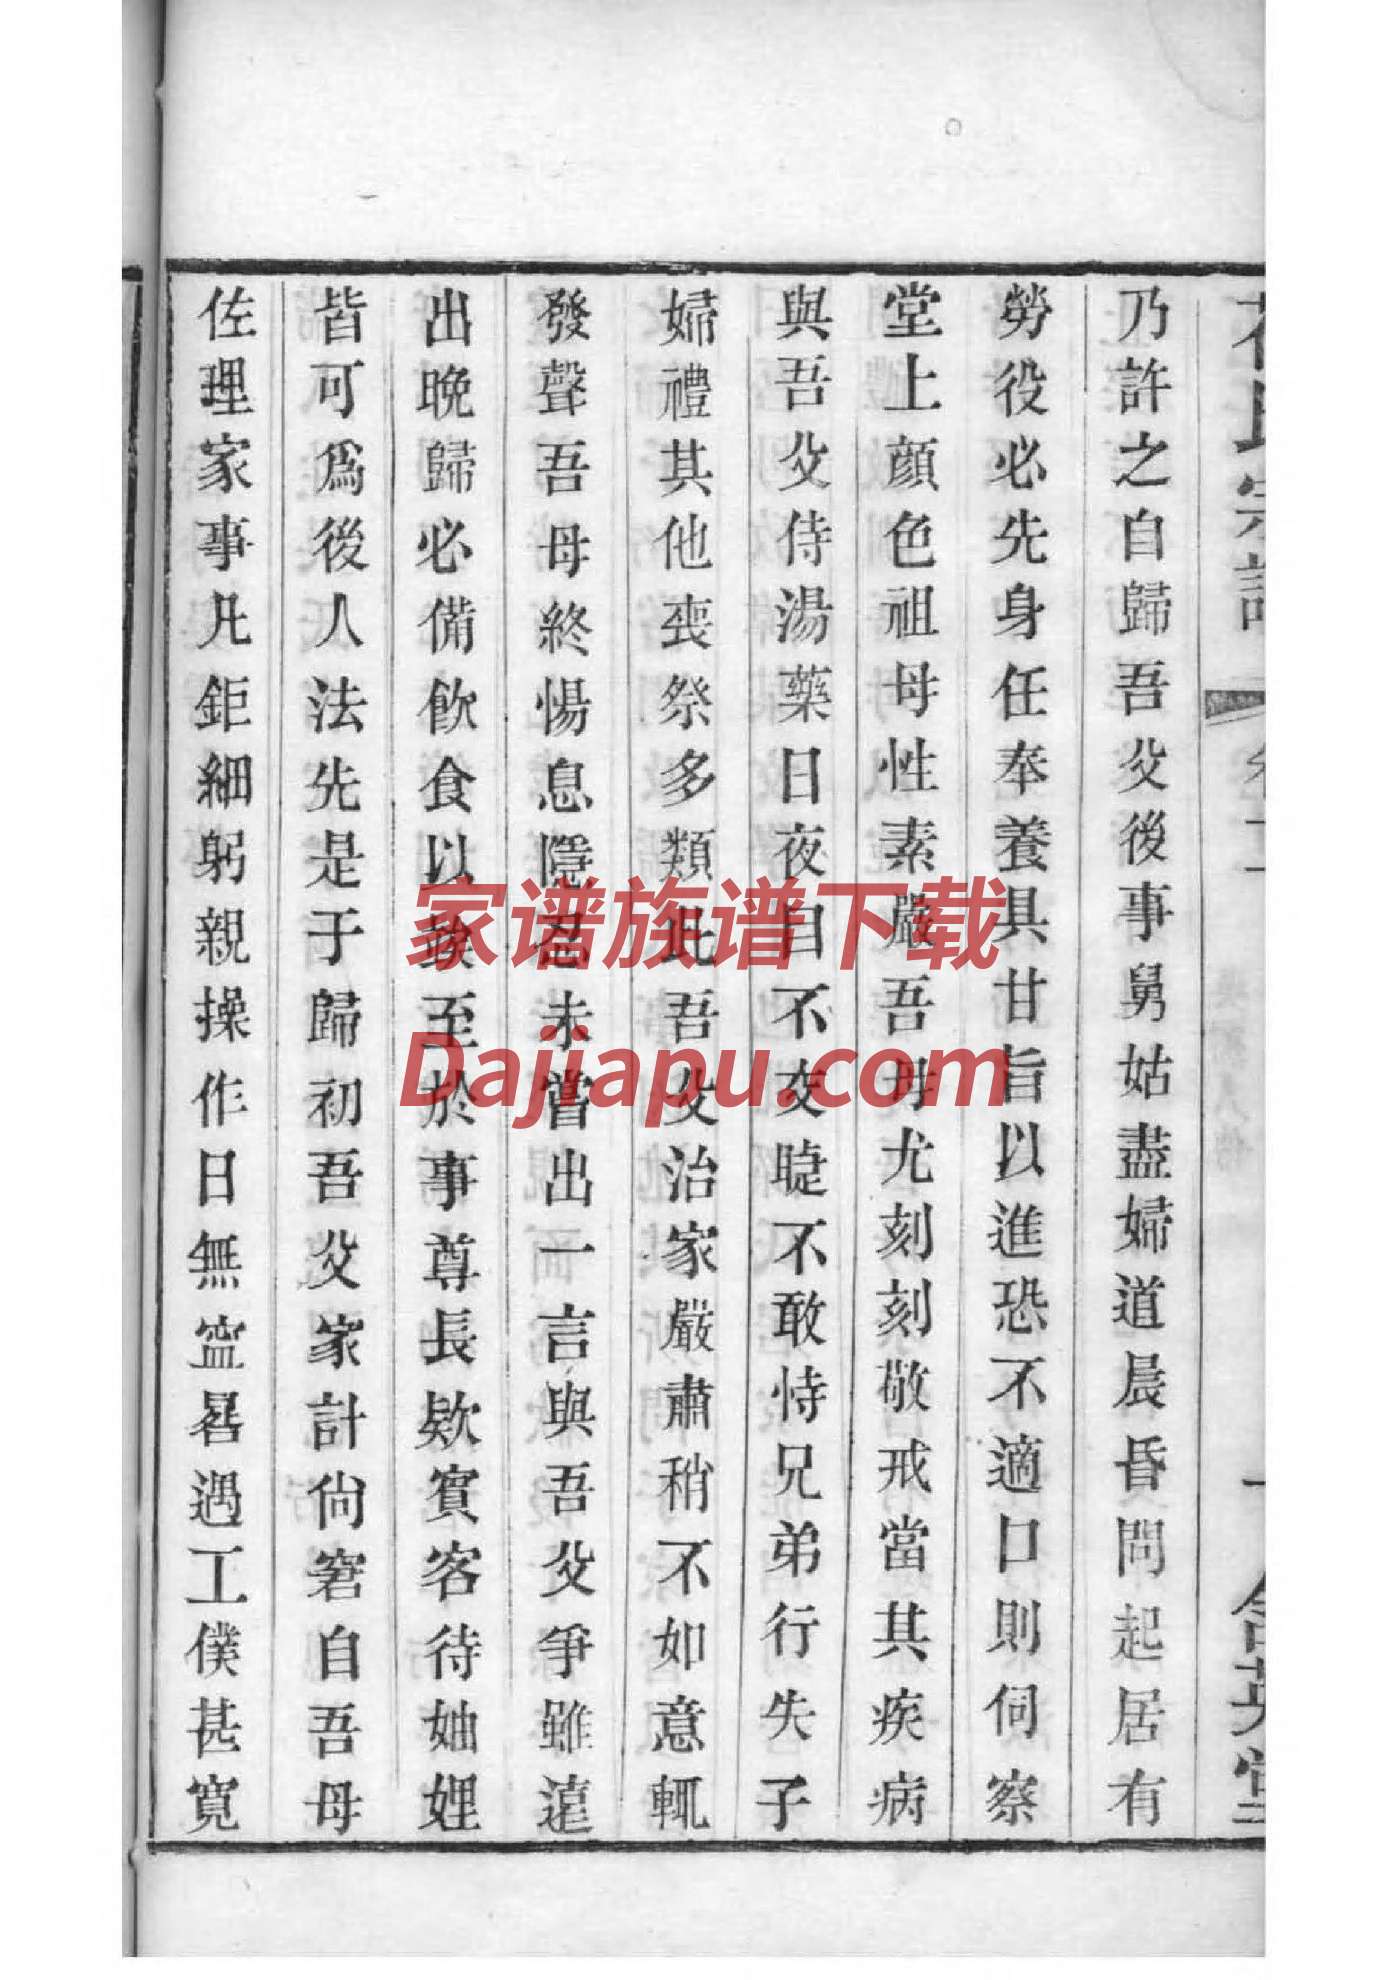 乃許之自歸吾父後事舅姑盡婦道晨昏問起居有
勞役必先身任奉養具甘旨以進恐不適口則伺察
堂上顔色祖母性素嚴吾母尤刻刻敬戒當其疾病
與吾父侍湯藥日夜目不交睫不敢恃兄弟行失子
婦禮其他喪祭多類此吾父治家嚴肅稍不如意輒
發聲吾母終惕息隱忍未嘗出一言與吾父爭雖遠
出晚歸必備飲食以俟至於事尊長欵賓客待妯娌
皆可爲後人法先是于歸初吾父家計尙窘自吾母
佐理家事凡鉅細躬親操作日無寍晷遇工僕甚寬
家谱族谱下载
Dajiapu.com